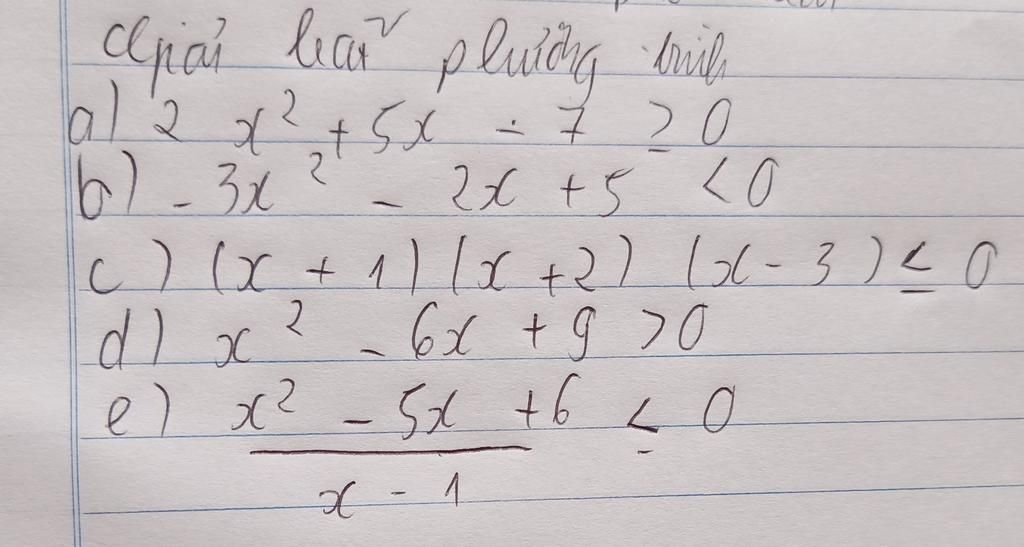 Giải bất phương trình
a) 2x² + 5x - 7 ≥ 0
b) - 3x² - 2x + 5 < 0
c) (x + 1) (x + 2) (x - 3) ≤ 0
d) x² - 6x + 9 > 0
e) x² - 5x + 6 ≤ 0
x - 1